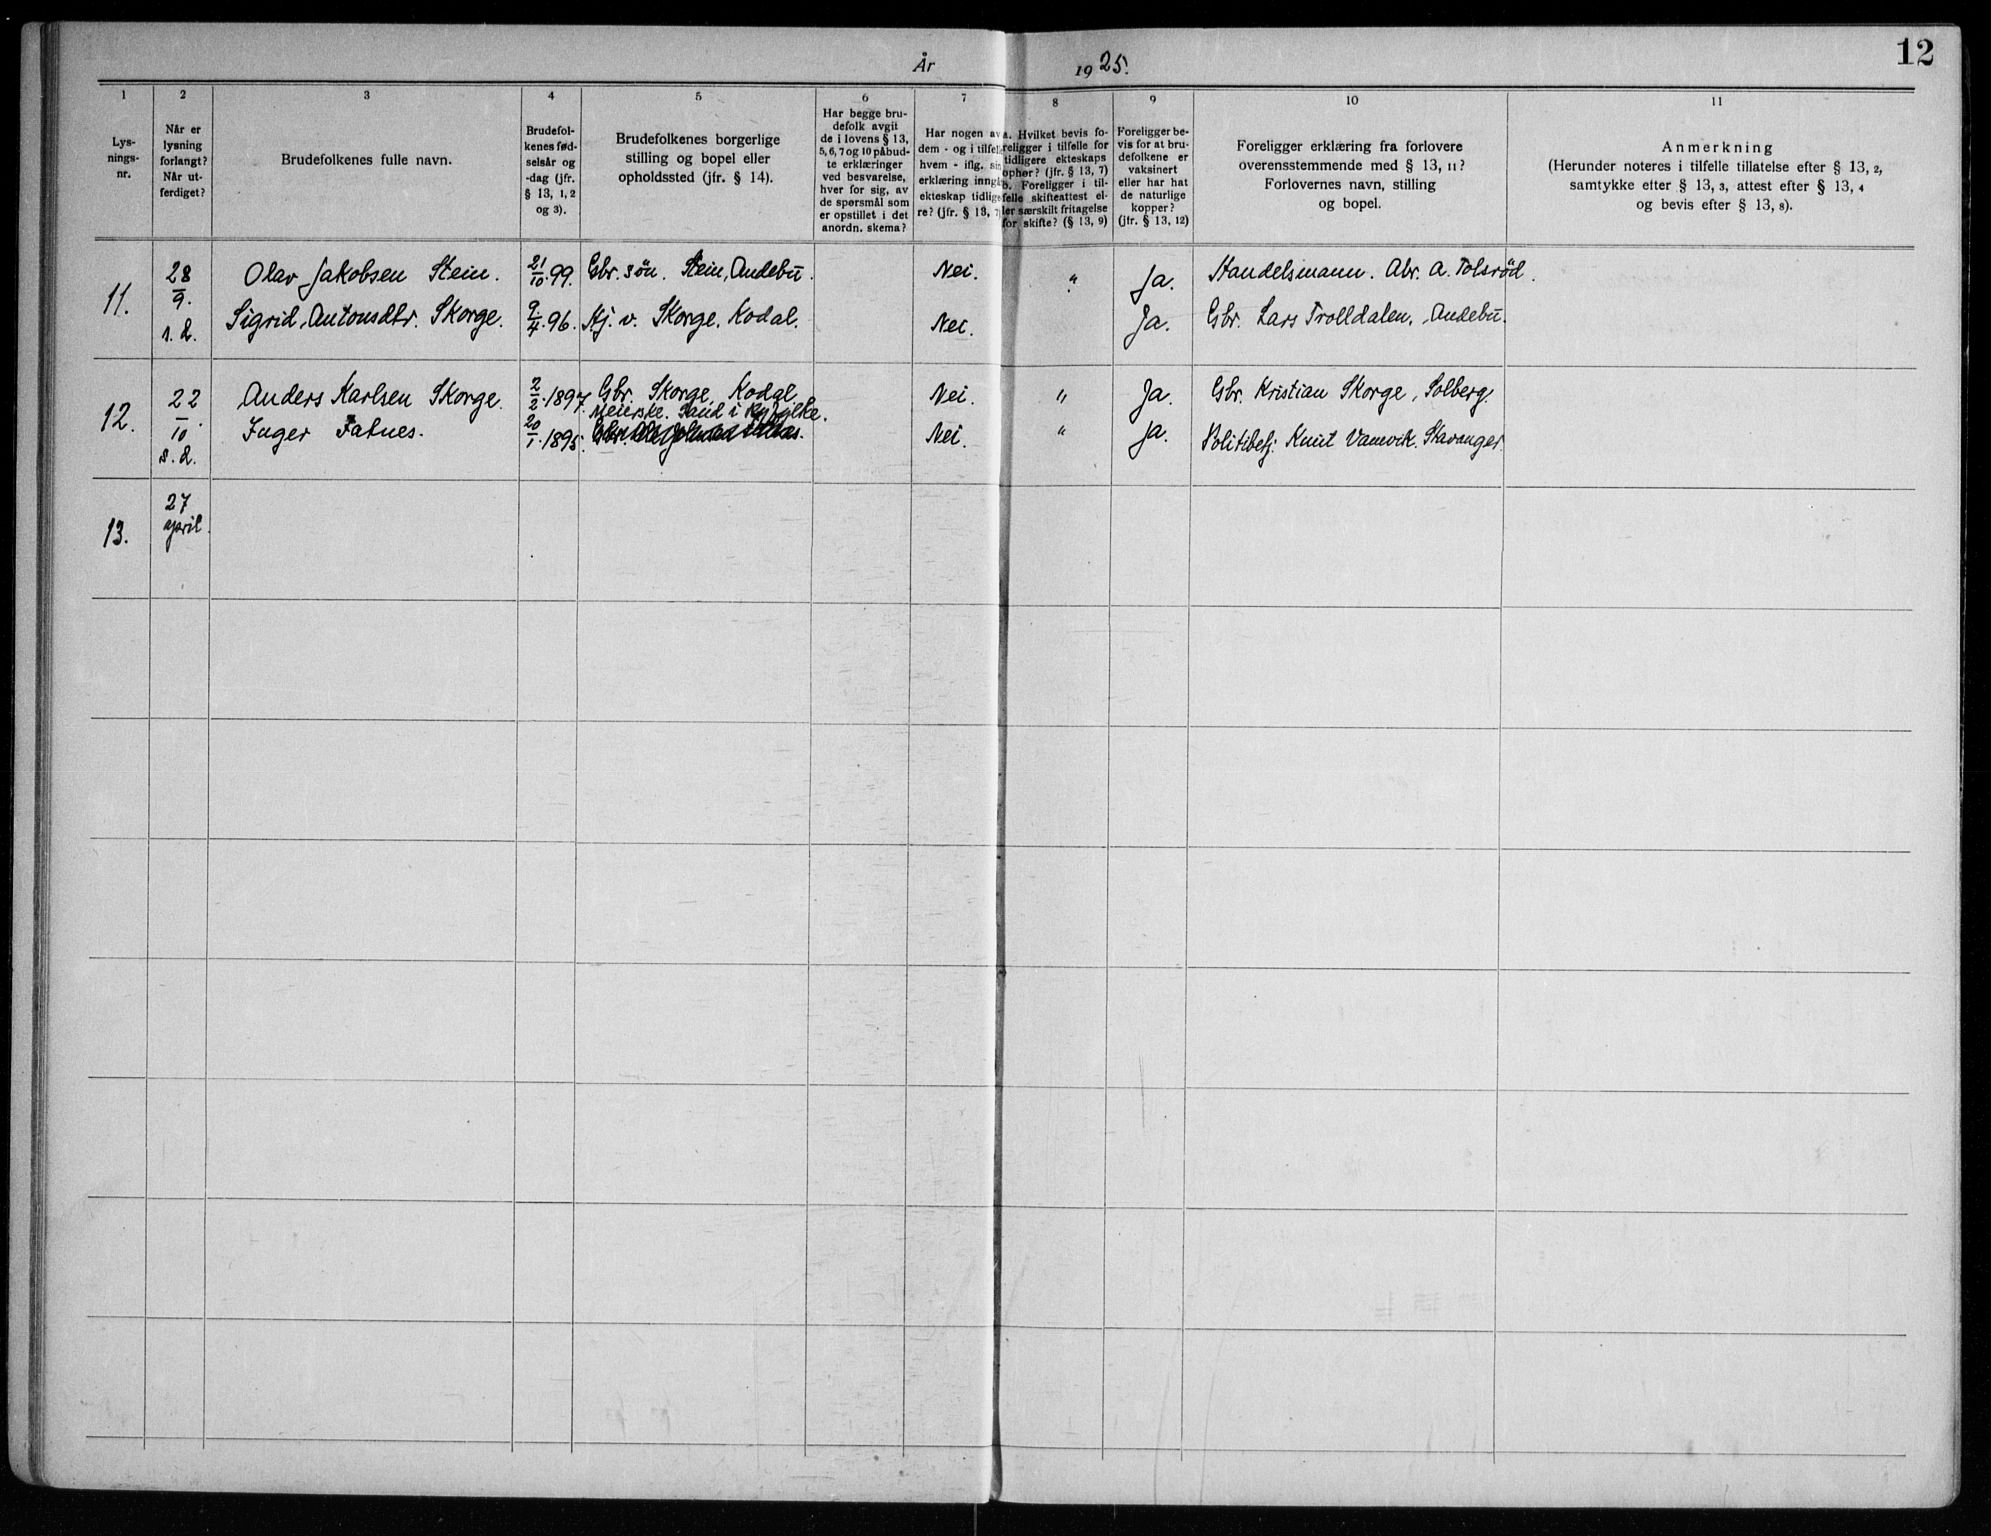 12
År 1925.
1 2 3 4 5 6 7 8 9 10 11
Lys-
nings-
nr.
Når er
lysning
forlangt?
Når ut-
ferdiget?
Brudefolkenes fulle navn.
Brudefol-
kenes fød-
selsår og
-dag (jfr.
§ 13, 1, 2
og 3).
Brudefolkenes borgerlige
stilling og bopel eller
opholdssted (jfr. § 14).
Har begge bru-
defolk avgit
de i lovens § 13,
5, 6, 7 og 10 påbud-
te erklæringer
ved besvarelse,
hver for sig, av
de spørsmål som
er opstillet i det
anordn. skema?
Har nogen av
dem - og i tilfel
hvem - iflg. sin
erklæring inngå
ekteskap tidlige
re? (jfr. § 13, 7)
a. Hvilket bevis fo-
religger i tilfelle for
tidligere ekteskaps
ophør? (jfr. § 13, 7)
b. Foreligger i til-
felle skifteattest el-
ler særskilt fritagelse
for skifte? (§ 13, 9)
Foreligger be-
vis for at bru-
defolkene er
vaksinert
eller har hat
de naturlige
kopper?
(jfr. § 13, 12)
Foreligger erklæring fra forlovere
overensstemmende med § 13, 11?
Forlovernes navn, stilling
og bopel.
Anmerkning
(Herunder noteres i tilfelle tillatelse efter § 13, 2,
samtykke efter § 13, 3, attest efter § 13, 4
og bevis efter § 13, 8).
11. 28/9. s. d.
Olav Jakobsen Stein. 21/10.99. Gbr. søn. Stein, Andebu. Nei. " Ja. Handelsmann. Abr. A. Tolsrød.
Sigrid Antonsdtr. Skorge. 9/4.96. Hj. v. Skorge. Kodal. Nei. Ja. Gbr. Lars Trolldalen, Andebu.
12. 22/10. s. d.
Anders Karlsen Skorge. 2/2.1897. Gbr. Skorge, Kodal. Nei. " Ja. Gbr. Kristian Skorge, Solberg.
Meierske. Sand i Ryfylke.
Inger Fatnes. 20/1.1895. Nei. " Ja. Politibetj. Knut Vamvik. Stavanger.
13. 27
april.